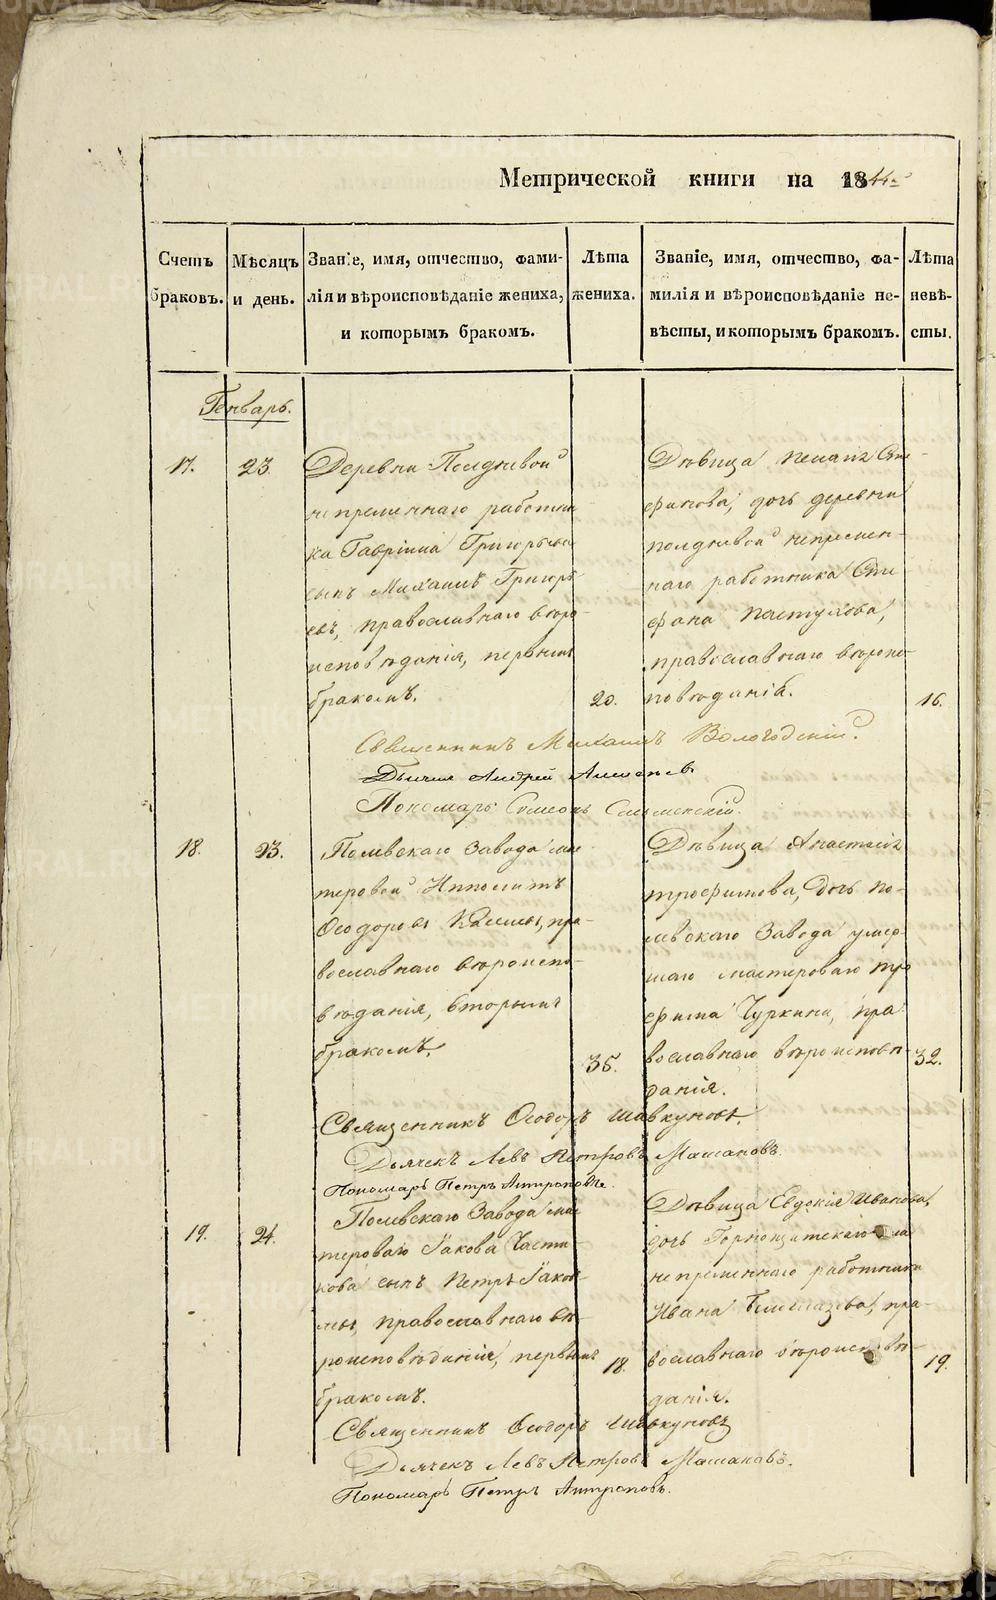 Метрической книги на 1844
Счетъ браковъ.
Мѣсяцъ и день.
Званіе, имя, отчество, фами-
лія и вѣроисповѣданіе жениха,
и которымъ бракомъ.
Лѣта жениха.
Званіе, имя, отчество, фа-
милія и вѣроисповѣданіе не-
вѣсты, и которымъ бракомъ.
Лѣта невѣ-
сты.
Генварь.
17.
23
Деревни Полдневой
непременнаго работни
ка Гавріила Григорьева
сынъ Михаилъ Григорь
евъ, православнаго вѣро
исповѣданія, первымъ
бракомъ.
20.
Дѣвица Пелагія Сте-
фанова, дочь деревни
полдневой непремен-
наго работника Сте
фана Пастухова,
православнаго вѣроис
повѣданія.
16.
Священникъ Михаилъ Вологодскій.
Дьячекъ Андрей
Пономарь Симеонъ
18.
23.
Полевскаго Завода мас
теровой Ипполитъ
Ѳеодоровъ пра-
вославнаго вѣроиспо-
вѣданія, вторымъ
бракомъ.
35.
Дѣвица Анастасія
трофимова, дочь По-
левскаго Завода умер-
шаго мастероваго Тро
фима Чуркина, пра
вославнаго вѣроисповѣ-
данія.
32.
Священникъ Ѳеодоръ Шавкуновъ.
Дьячекъ Левъ Петровъ Машановъ.
Пономарь Петръ Антроповъ.
19.
24.
Полевскаго Завода мас
тероваго Іакова Части-
кова сынъ Петръ Іаков-
левъ, православнаго вѣ-
роисповѣданія, первымъ
бракомъ.
18.
Дѣвица Евдокія Иванова,
дочь Горнощитскаго
непременнаго работника
Ивана пра-
вославнаго вѣроисповѣ-
данія.
19.
Священникъ Ѳеодоръ Шавкуновъ
Дьячекъ Левъ Петровъ Машановъ.
Пономарь Петръ Антроповъ.